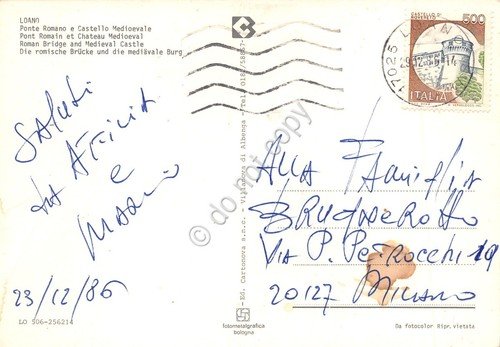 LOANO
Ponte Romano e Castello Medioevale
Pont Romain et Chateau Medioeval
Roman Bridge and Medieval Castle
Die romische Brücke und die mediävale Burg
Saluti
da
e
Mario
23/12/86
LO 506-256214
Ed. Cartonova s.n.c. - Villanova di Albenga -
fotometalgrafica
bologna
17025 LOANO
500
ITALIA
Alla Famiglia
Via P. Petrocchi 19
20127 Milano
Da fotocolor Ripr. vietata
do not copy